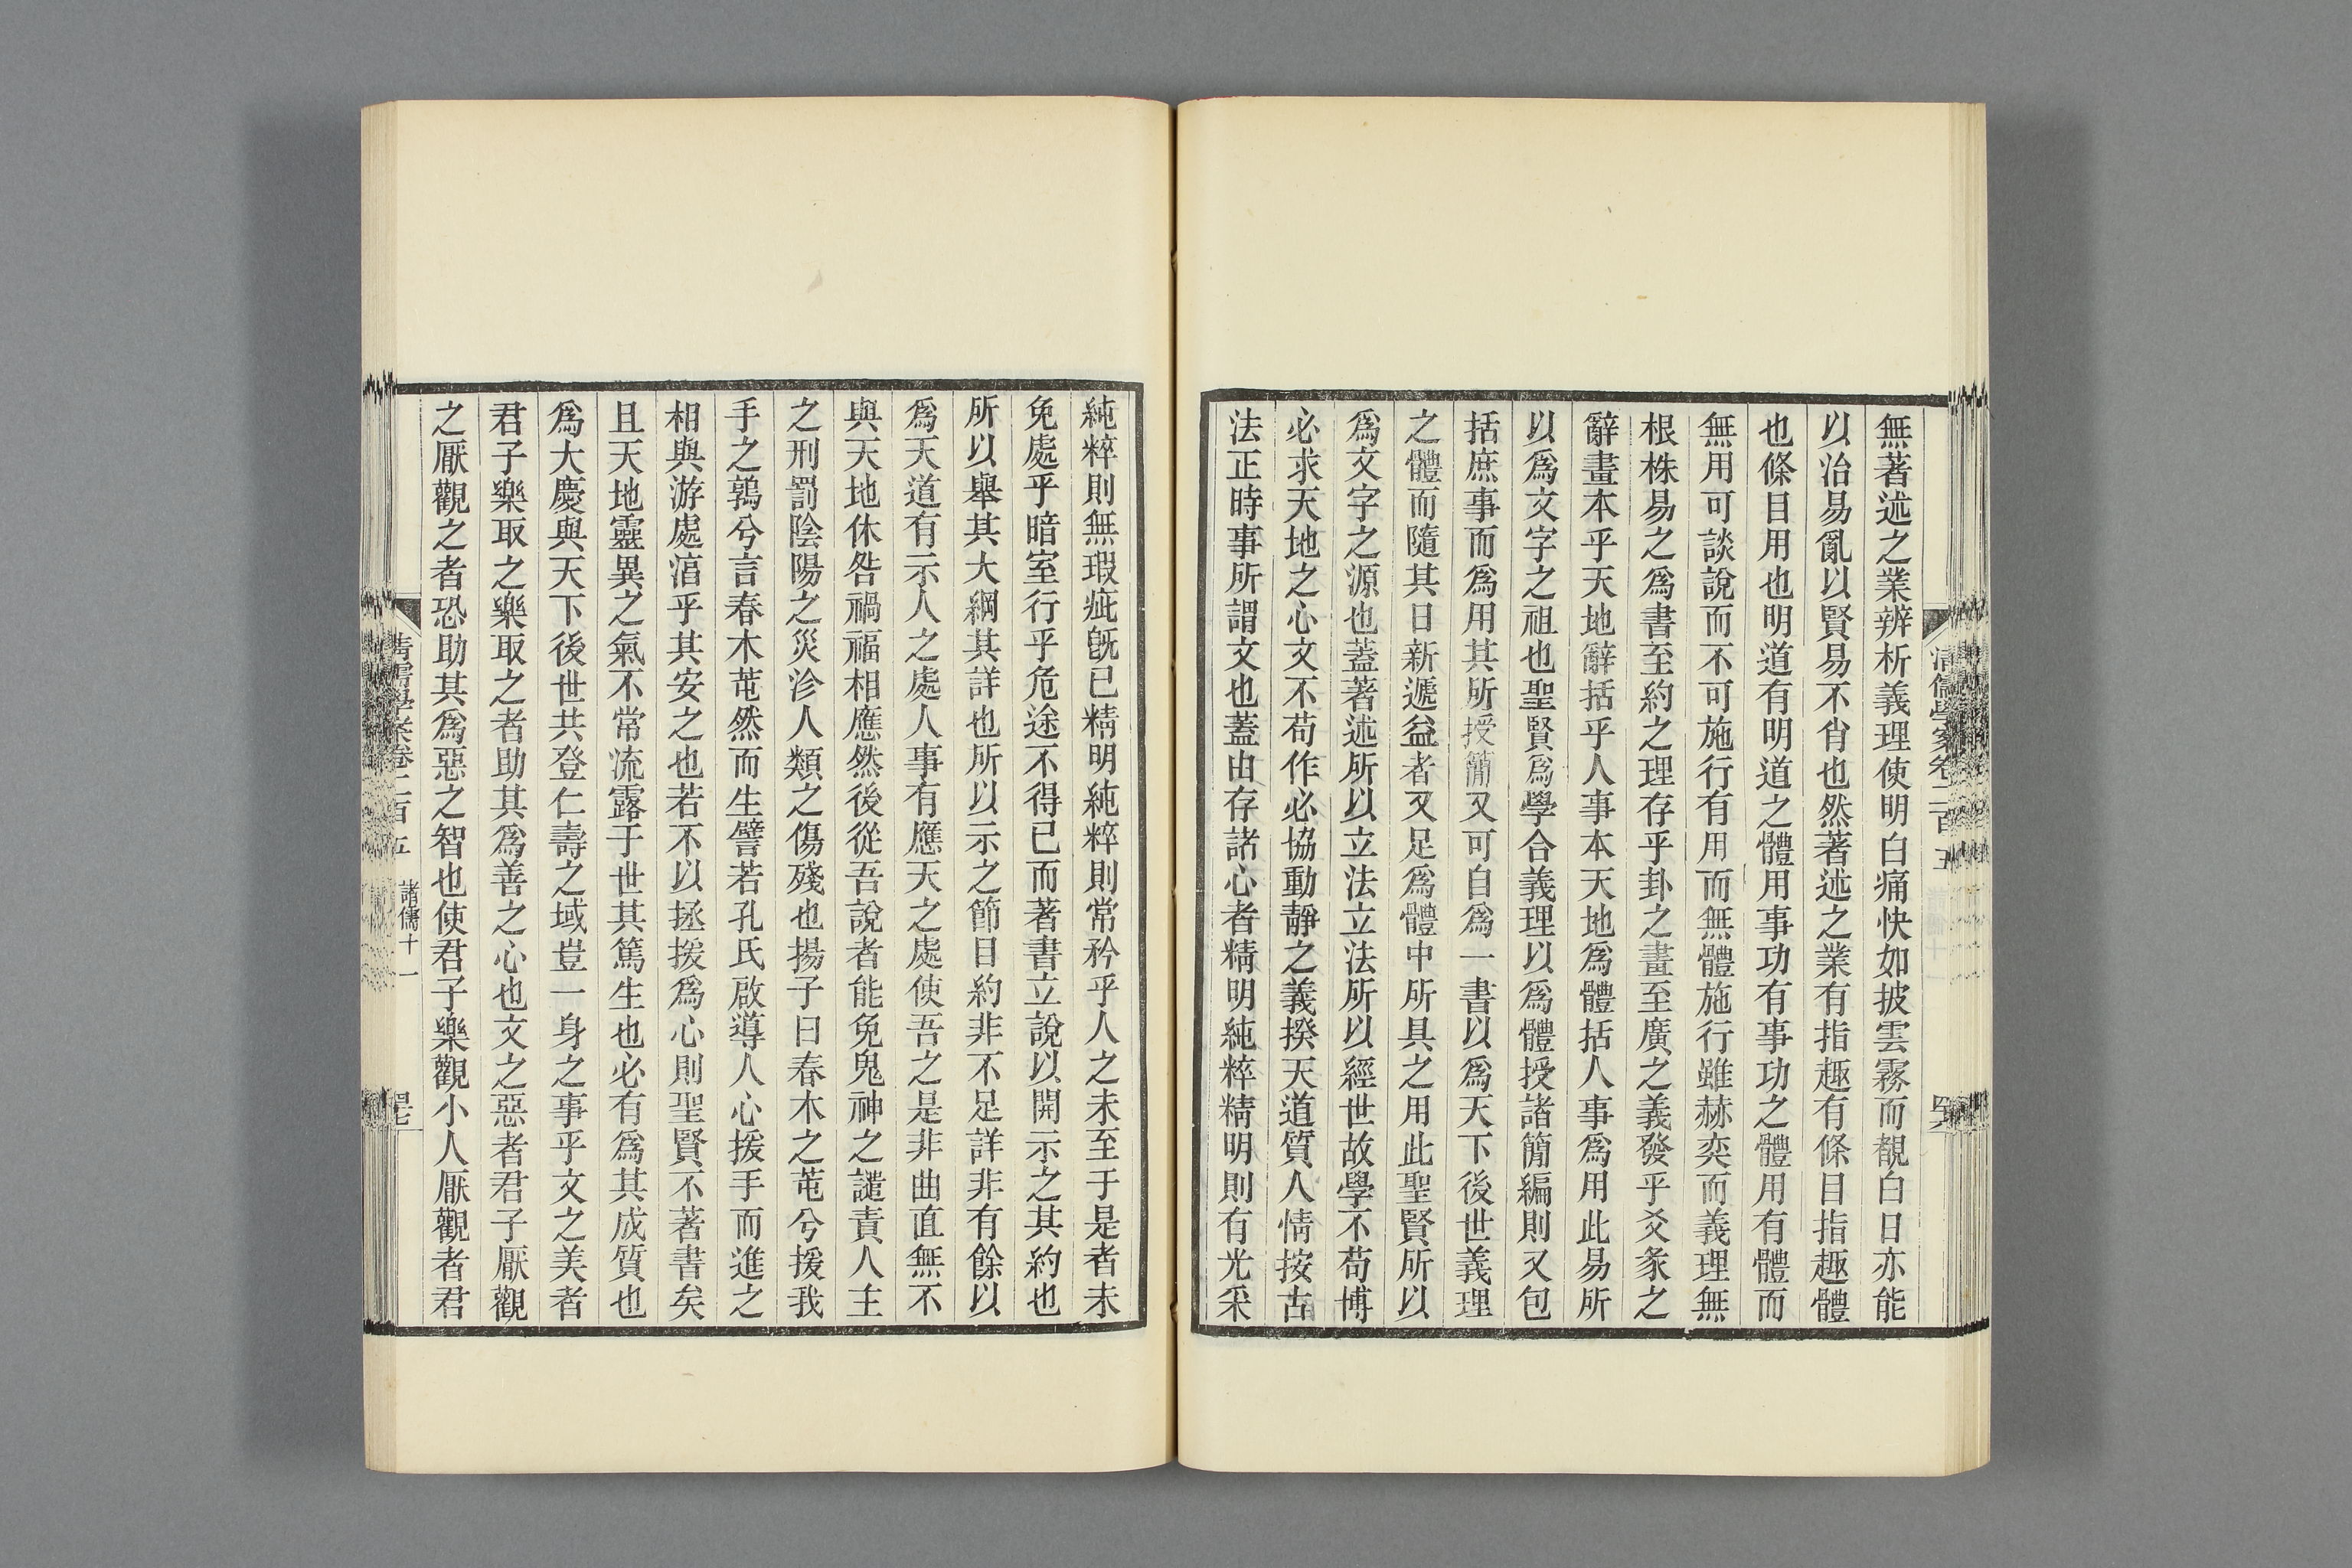 無著述之業辨析義理使明白痛快如披雲霧而覩白日亦能
以治易亂以賢易不肖也然著述之業有指趣有條目指趣體
也條目用也明道有明道之體用事功有事功之體用有體而
無用可談說而不可施行有用而無體施行雖赫奕而義理無
根株易之爲書至約之理存乎卦之畫至廣之義發乎爻彖之
辭畫本乎天地辭括乎人事本天地爲體括人事爲用此易所
以爲文字之祖也聖賢爲學合義理以爲體授諸簡編則又包
括庶事而爲用其所授簡又可自爲一書以爲天下後世義理
之體而隨其日新遞益者又足爲體中所具之用此聖賢所以
爲文字之源也蓋著述所以立法立法所以經世故學不苟博
必求天地之心文不苟作必協動靜之義揆天道質人情按古
法正時事所謂文也蓋由存諸心者精明純粹精明則有光采
清儒學案卷二百五
純粹則無瑕疵旣已精明純粹則常矜乎人之未至于是者未
免處乎暗室行乎危途不得已而著書立說以開示之其約也
所以舉其大綱其詳也所以示之節目約非不足詳非有餘以
爲天道有示人之處人事有應天之處使吾之是非曲直無不
與天地休咎禍福相應然後從吾說者能免鬼神之譴責人主
之刑罰陰陽之災沴人類之傷殘也揚子曰春木之芚兮援我
手之鶉兮言春木芚然而生譬若孔氏啟導人心援手而進之
相與游處涽乎其安之也若不以拯援爲心則聖賢不著書矣
且天地靈異之氣不常流露于世其篤生也必有爲其成質也
爲大慶與天下後世共登仁壽之域豈一身之事乎文之美者
君子樂取之樂取之者助其爲善之心也文之惡者君子厭觀
之厭觀之者恐助其爲惡之智也使君子樂觀小人厭觀者君
清儒學案卷二百五 諸儒十一